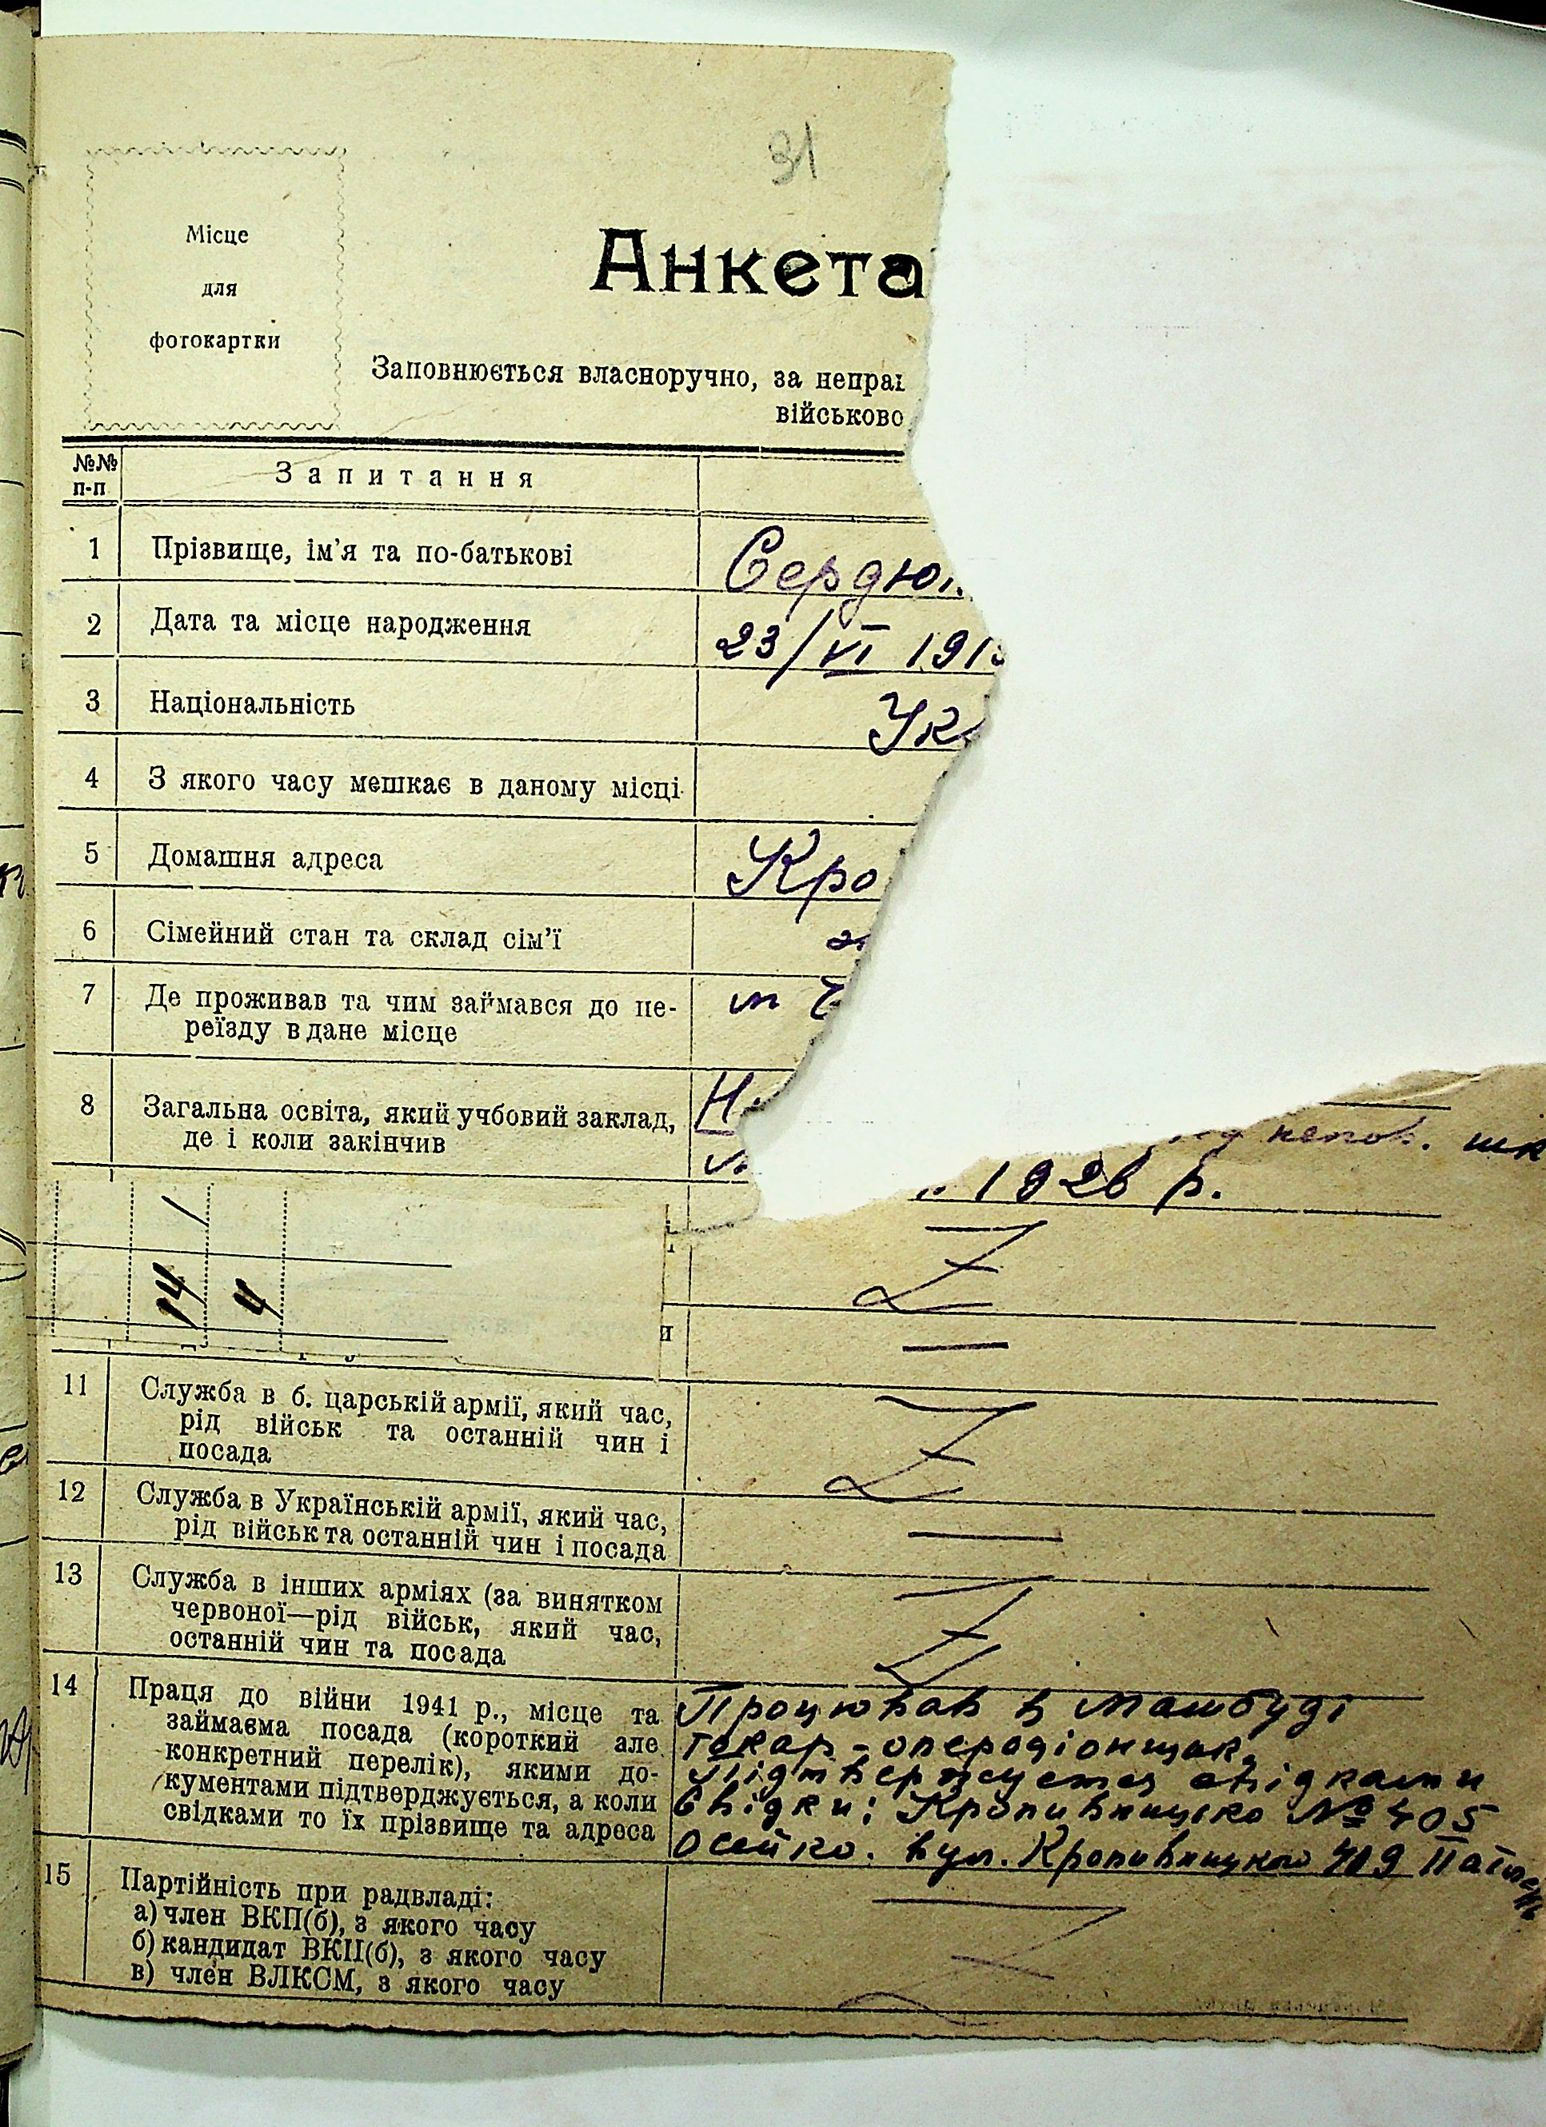 31
Місце
для
фотокартки
Анкета
Заповнюється власноручно, за неправ
військово
№№
п-п
Запитання
1 Прізвище, ім'я та по-батькові Сердю
2 Дата та місце народження 23/VI 191
3 Національність Ук
4 З якого часу мешкає в даному місці
5 Домашня адреса Кро
6 Сімейний стан та склад сім'ї
7 Де проживав та чим займався до пе- м
реїзду в дане місце
8 Загальна освіта, який учбовий заклад, Н непов. шк
де і коли закінчив 1926 р.
14 4
и
11 Служба в б. царській армії, який час,
рід військ та останній чин і
посада
12 Служба в Українській армії, який час,
рід військ та останній чин і посада
13 Служба в інших арміях (за винятком
червоної—рід військ, який час,
останній чин та посада
14 Праця до війни 1941 р., місце та Працював в Машбуді
займаєма посада (короткий але токар-операціонщик,
конкретний перелік), якими до- Підтверджуется свідками
кументами підтверджується, а коли Свідки: Кропивницько № 405
свідками то їх прізвище та адреса Осейко. вул. Кропивницкого 409
15 Партійність при радвладі:
а) член ВКП(б), з якого часу
б) кандидат ВКП(б), з якого часу
в) член ВЛКСМ, з якого часу